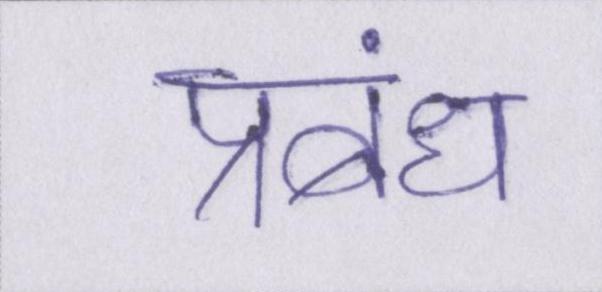 प्रबंध